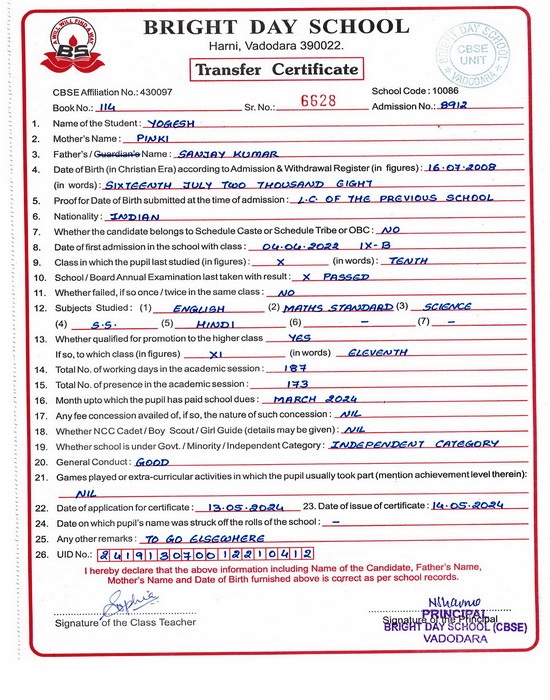 A WILL WILL FIND A WAY
BS
BRIGHT DAY SCHOOL
Harni, Vadodara 390022.
Transfer Certificate
BRIGHT DAY SCHOOL
CBSE
UNIT
VADODARA
CBSE Affiliation No.: 430097 School Code : 10086
Book No.: 114 Sr. No.: 6628 Admission No.: 8912
1. Name of the Student : YOGESH
2. Mother's Name : PINKI
3. Father's / Guardian's Name : SANJAY KUMAR
4. Date of Birth (in Christian Era) according to Admission & Withdrawal Register (in figures) : 16.07.2008
(in words) : SIXTEENTH JULY TWO THOUSAND EIGHT
5. Proof for Date of Birth submitted at the time of admission : L.C. OF THE PREVIOUS SCHOOL
6. Nationality : INDIAN
7. Whether the candidate belongs to Schedule Caste or Schedule Tribe or OBC : NO
8. Date of first admission in the school with class : 04.04.2022 IX-B
9. Class in which the pupil last studied (in figures) : X (in words) : TENTH
10. School / Board Annual Examination last taken with result : X PASSED
11. Whether failed, if so once / twice in the same class : NO
12. Subjects Studied : (1) ENGLISH (2) MATHS STANDARD (3) SCIENCE
(4) S.S. (5) HINDI (6) – (7) –
13. Whether qualified for promotion to the higher class YES
If so, to which class (in figures) XI (in words) ELEVENTH
14. Total No. of working days in the academic session : 187
15. Total No. of presence in the academic session : 173
16. Month upto which the pupil has paid school dues : MARCH 2024
17. Any fee concession availed of, if so, the nature of such concession : NIL
18. Whether NCC Cadet / Boy Scout / Girl Guide (details may be given) : NIL
19. Whether school is under Govt. / Minority / Independent Category : INDEPENDENT CATEGORY
20. General Conduct : GOOD
21. Games played or extra-curricular activities in which the pupil usually took part (mention achievement level therein):
NIL
22. Date of application for certificate : 13.05.2024 23. Date of issue of certificate : 14.05.2024
24. Date on which pupil's name was struck off the rolls of the school : –
25. Any other remarks : TO GO ELSEWHERE
26. UID No.: 241913070012210412
I hereby declare that the above information including Name of the Candidate, Father's Name,
Mother's Name and Date of Birth furnished above is correct as per school records.
Sophia
Signature of the Class Teacher
Signature of the Principal
PRINCIPAL
BRIGHT DAY SCHOOL (CBSE)
VADODARA